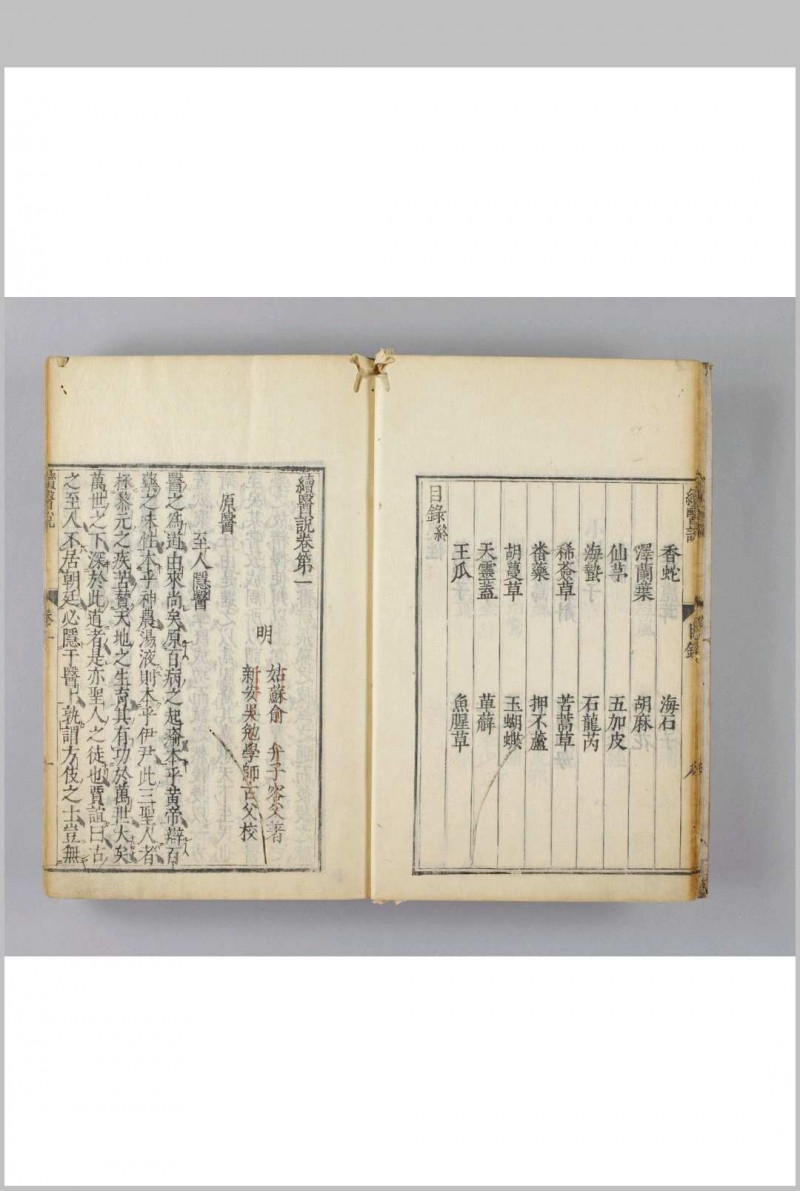 續醫說
目錄
香蛇 海石
澤蘭葉 胡麻
仙茅 五加皮
海蟄 石龍芮
稀薟草 苦蒿草
番藥 押不蘆
胡蔓草 玉蝴蝶
天靈蓋 萆薢
王瓜 魚腥草
目錄終
續醫說卷第一
明 姑蘇俞 弁子容父著
新安吳勉學師古父校
原醫
至人隱醫
醫之爲道由來尚矣原百病之起瘉本乎黃帝辯百
藥之味性本乎神農湯液則本乎伊尹此三聖人者
拯黎元之疾苦贊天地之生育其有功於萬世大矣
萬世之下深於此道者是亦聖人之徒也賈誼曰古
之至人不居朝廷必隱于醫卜孰謂方伎之士豈無
續醫說 卷一 一